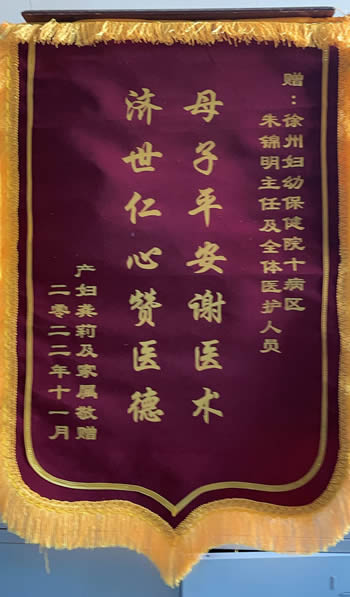 赠：徐州妇幼保健院十病区
朱锦明主任及全体医护人员
母子平安谢医术
济世仁心赞医德
产妇龚莉及家属敬赠
二零二二年十一月